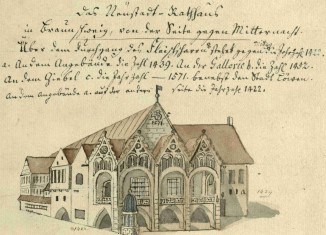 Das Neustadt-Rathaus
in Braunschweig, von der Seite gegen Mitternacht.
Über dem Durchgang des die Jahrzahl 1422.
a. An dem Angebäude die Zahl 1459. An der Gallerie b. die Zahl 1452.
An dem Giebel c. die Jahrzahl – 1571. benebst den Stadt Löwen.
An dem Angebäude a. auf der andern Seite die Jahrzahl 1422.